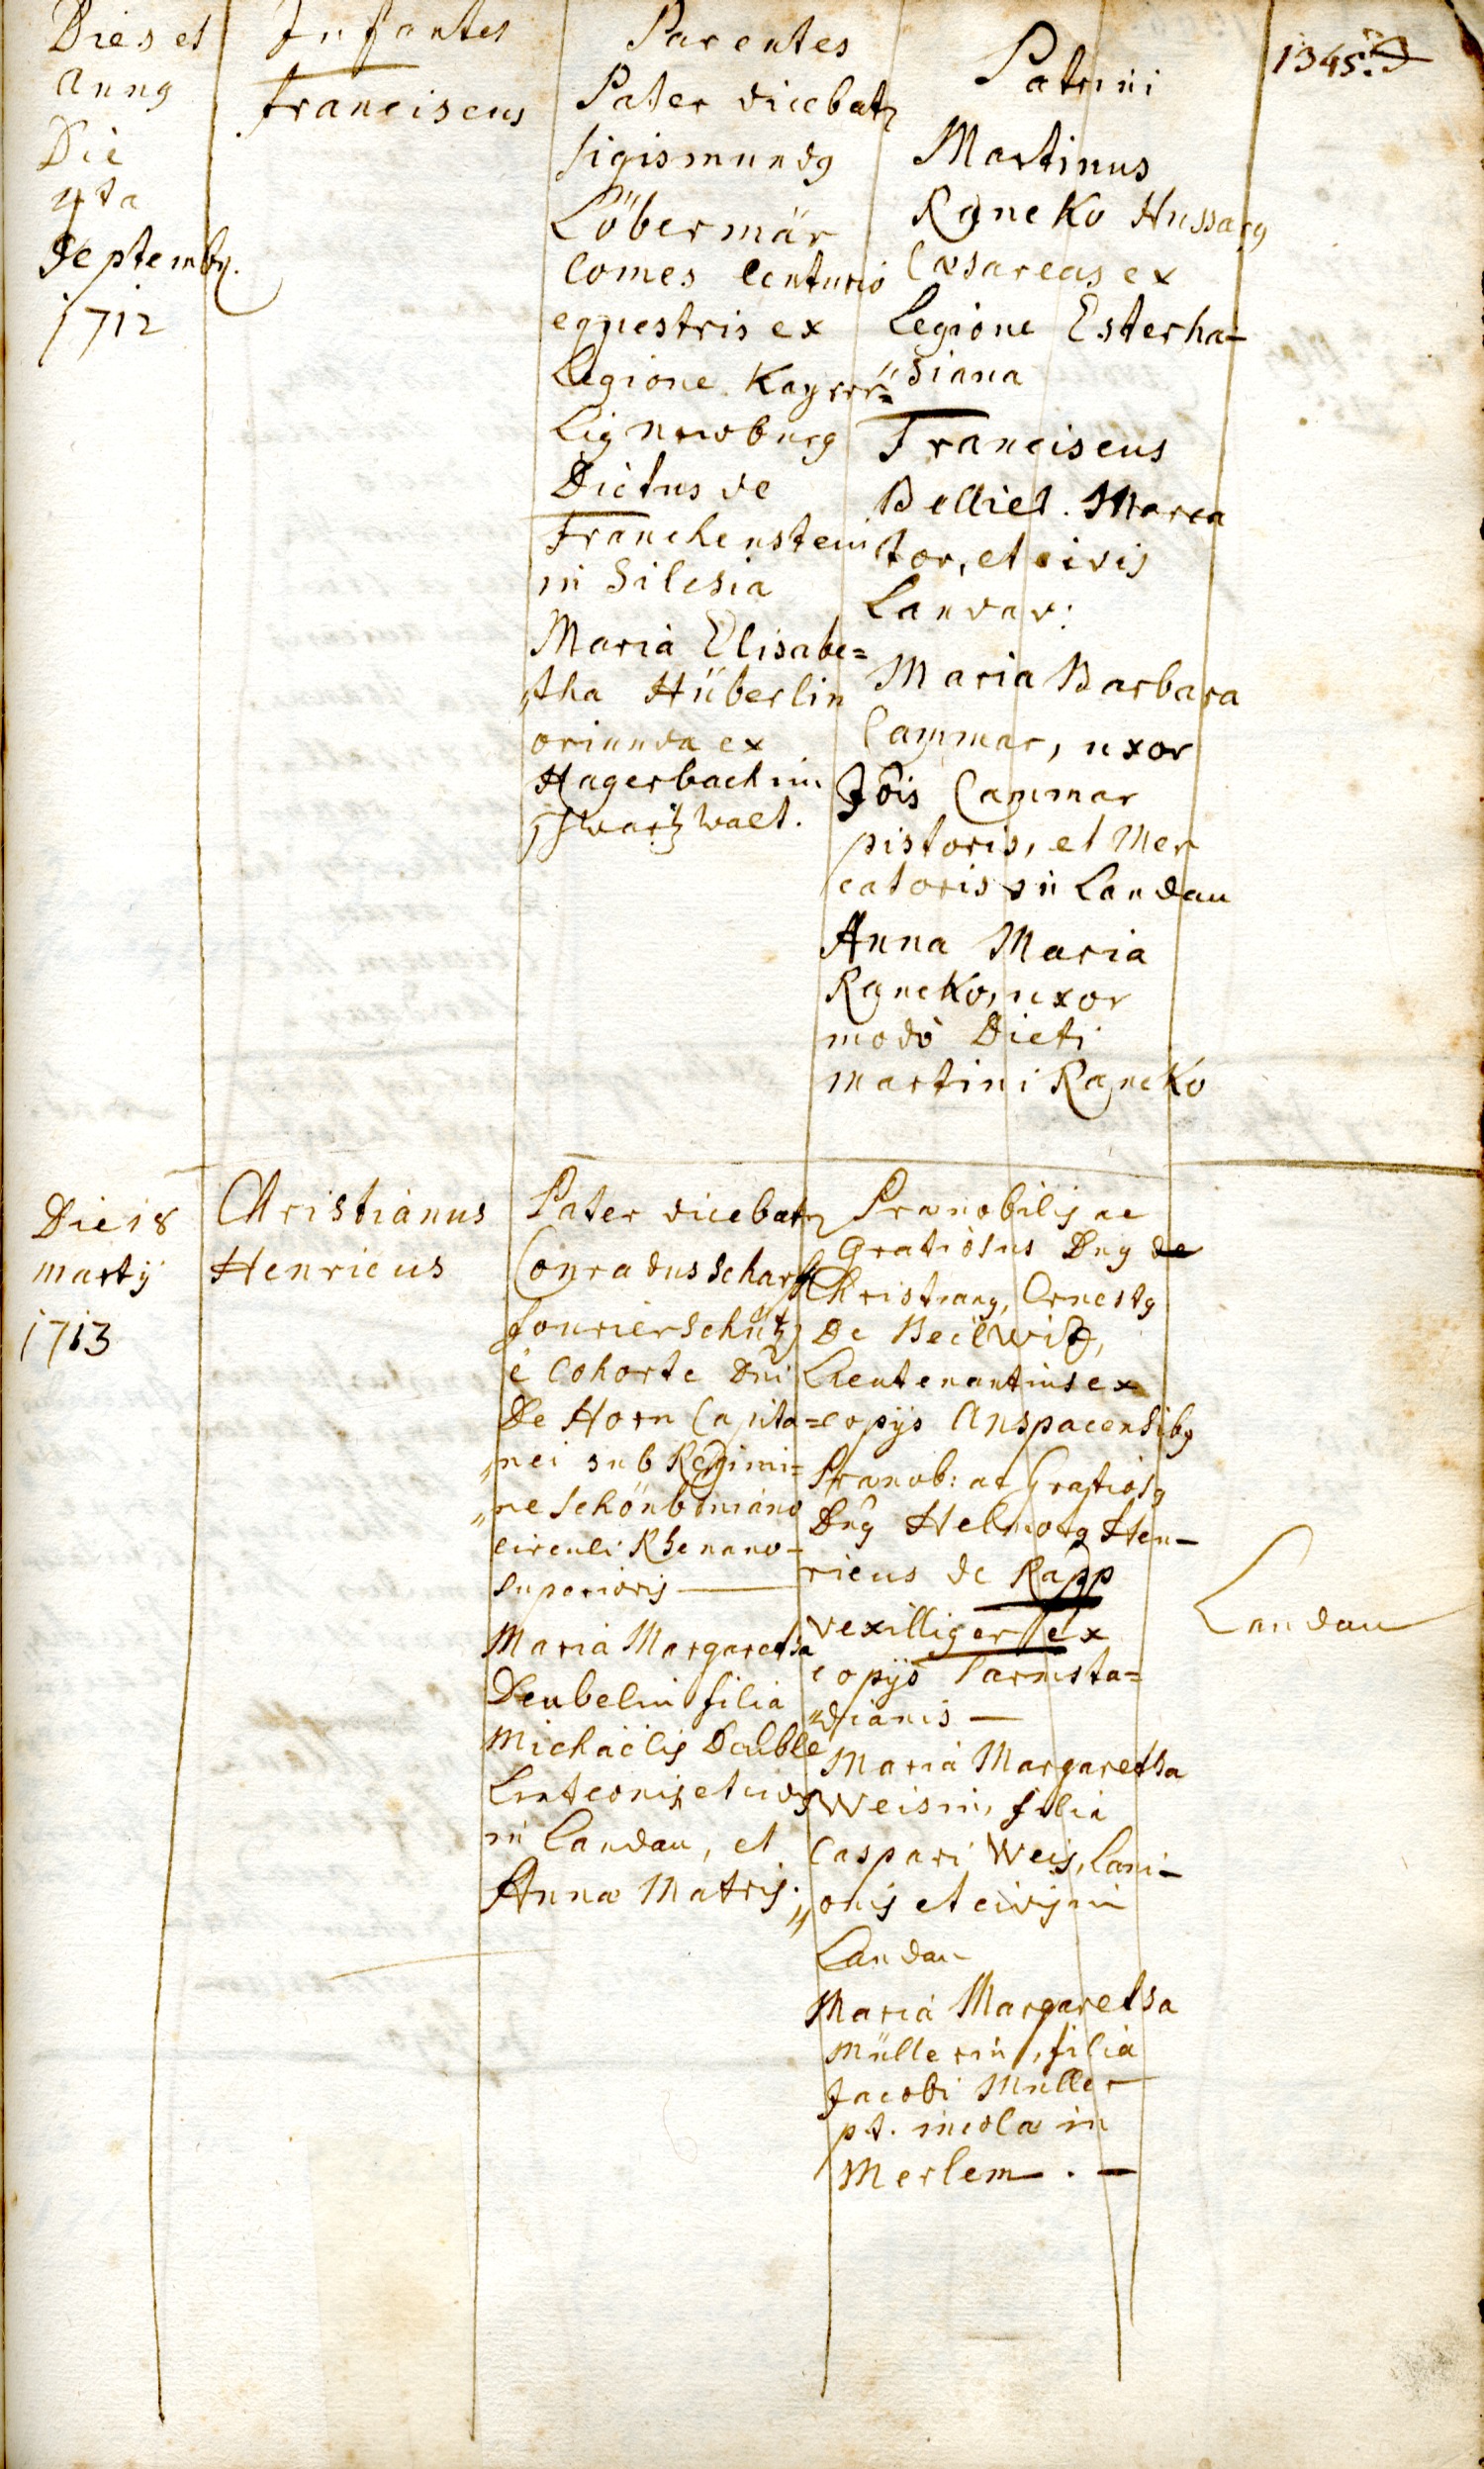 Dies et
annus
Infantes
Parentes
Patrini
1345.
Die
4ta
Septemb.
1712
Franciscus
Pater dicebatur
Sigismundus
Löbermär
Comes Centurio
equestris ex
Legione Kayser=
Lig Newburg
Dictus de
Franchenstein
in Silesia
Maria Elisabe=
„tha Hüberlin
oriunda ex
Hagerbach im
schwartzwalt.
Martinus
Raneko Hussarus
Cæsareus ex
Legione Esterha-
„siana
Franciscus
Belliet. Merca
tor, et civis
Landav:
Maria Barbara
Cammar, uxor
Jõis Cammar
pistoris, et Mer
catoris in Landau
Anna Maria
Raneko, uxor
modò Dicti
Martini Raneko
Die 18
martij
1713
Christianus
Henricus
Pater dicebatur
Conradus Scharff
fourierschütz
è Cohorte Dni
De Horn Capita=
„nei sub Regimi=
„ne Schönborniano
circuli Rhenano-
Superioris
Maria Margaretha
Deubelin filia
Michaëlis Deuble
Linteonis et civis
in Landau, et
Annæ Matris.
Prænobilis ac
Gratiosus Dnus de
Christianus, Ernestus
De Beilwitz,
Lieutenantius ex
copijs Anspacensibus
Prænob: ac Gratiosus
Dnus Helmotus Hen-
ricus de Rapp
vexilliger ex
copijs Darmsta=
„dianis
Maria Margaretha
Weisin, filia
Caspari Weis, Lani-
„onis et civis in
Landau
Maria Margaretha
Müllerin, filia
Jacobi Müller
p.t. incolæ in
Merlem.
Landau